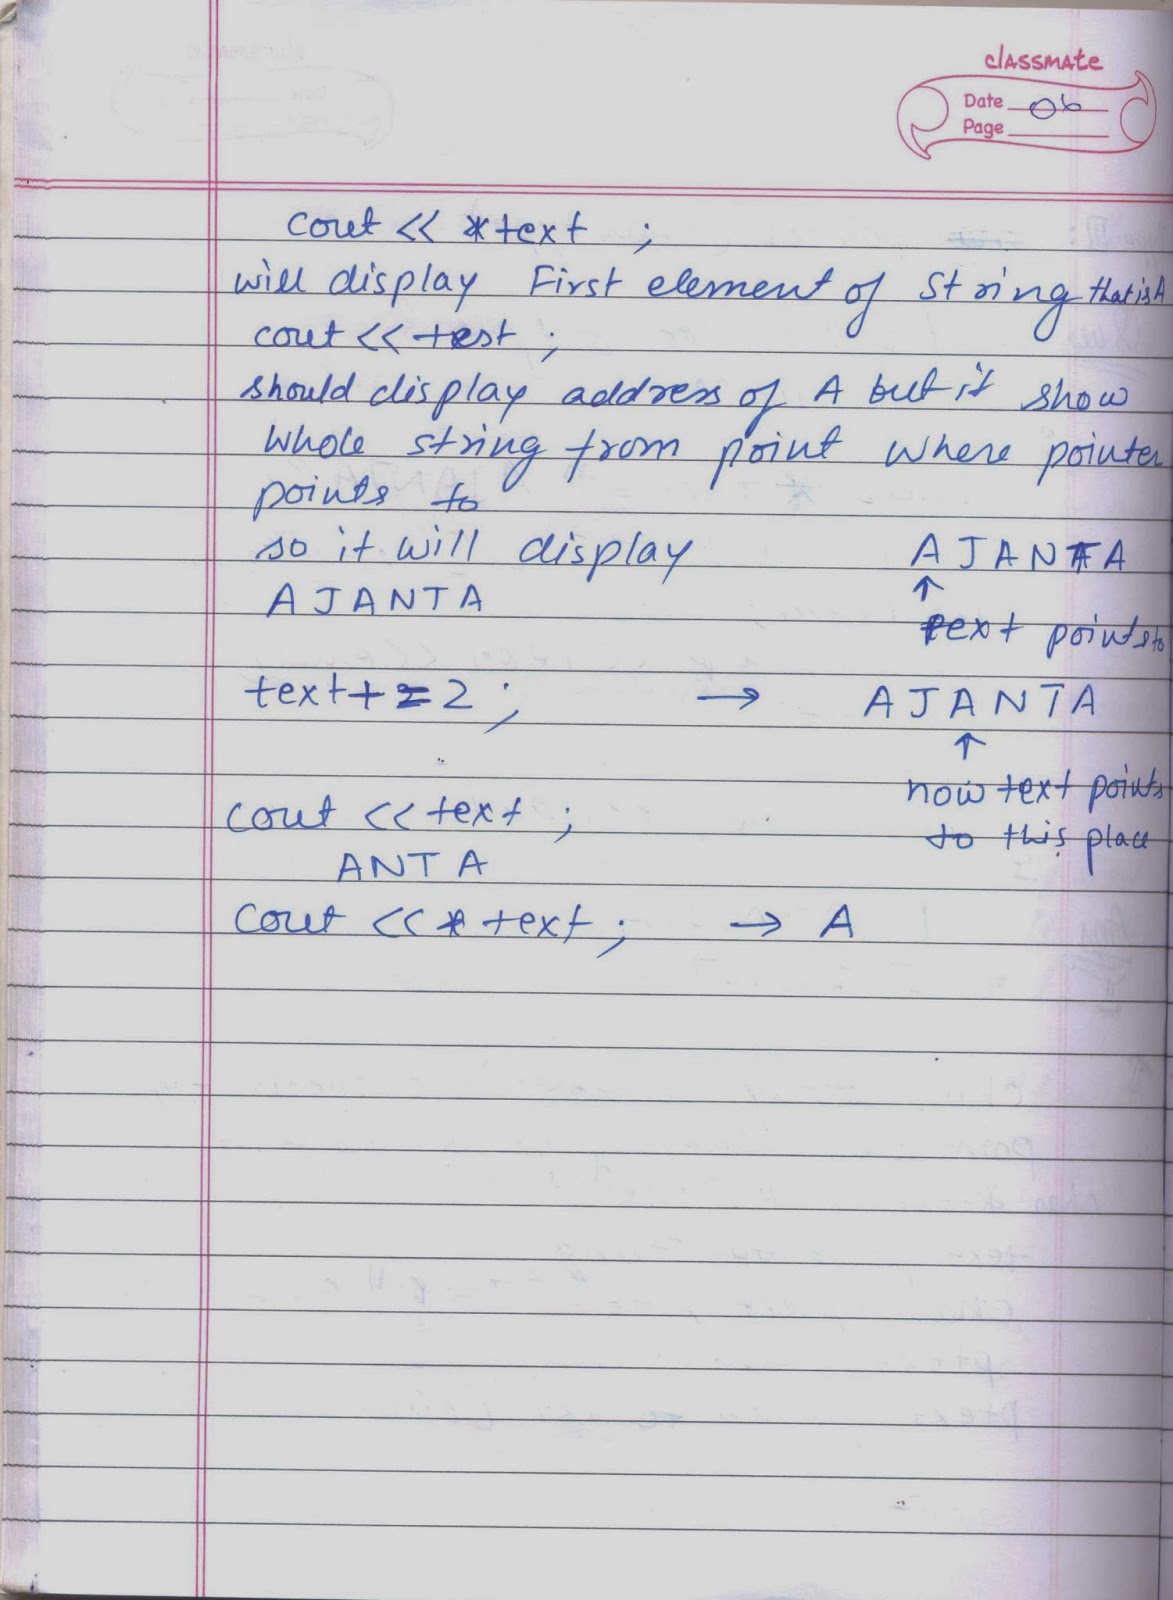 classmate
Date 06
Page
cout << *text ;
will display First element of String that is A
cout << test ;
should display address of A but it show
whole string from point where pointer
points to
so it will display
AJANTA
AJANTA
↑
text points to
text += 2 ; → AJANTA
↑
now text points
to this place
cout << text ;
ANTA
cout << * text ; → A